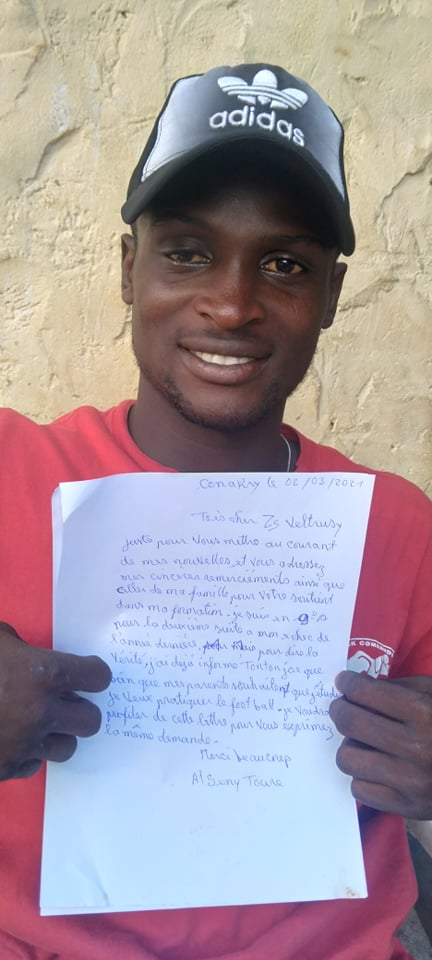 adidas
Conakry le 02/03/2021
Très cher Zs Veltrusy
juste pour vous mettre au courant
de mes nouvelles, et vous adressez
mes cinceres remerciéments ainsi que
celles de ma famille pour votre soutient
dans ma formation. je suis en 9e A
pour la deuxième suite a mon echec de
l'année dernière, Mais pour dire la
Vérité, j'ai déjà informé Tonton jac que
bien que mes parents souhaitent que j'étudie
je veux pratiquer le foot ball. je voudrais
profiter de cette lettre pour vous exprimez
la même demande.
Merci beaucoup
Al Seny Toure